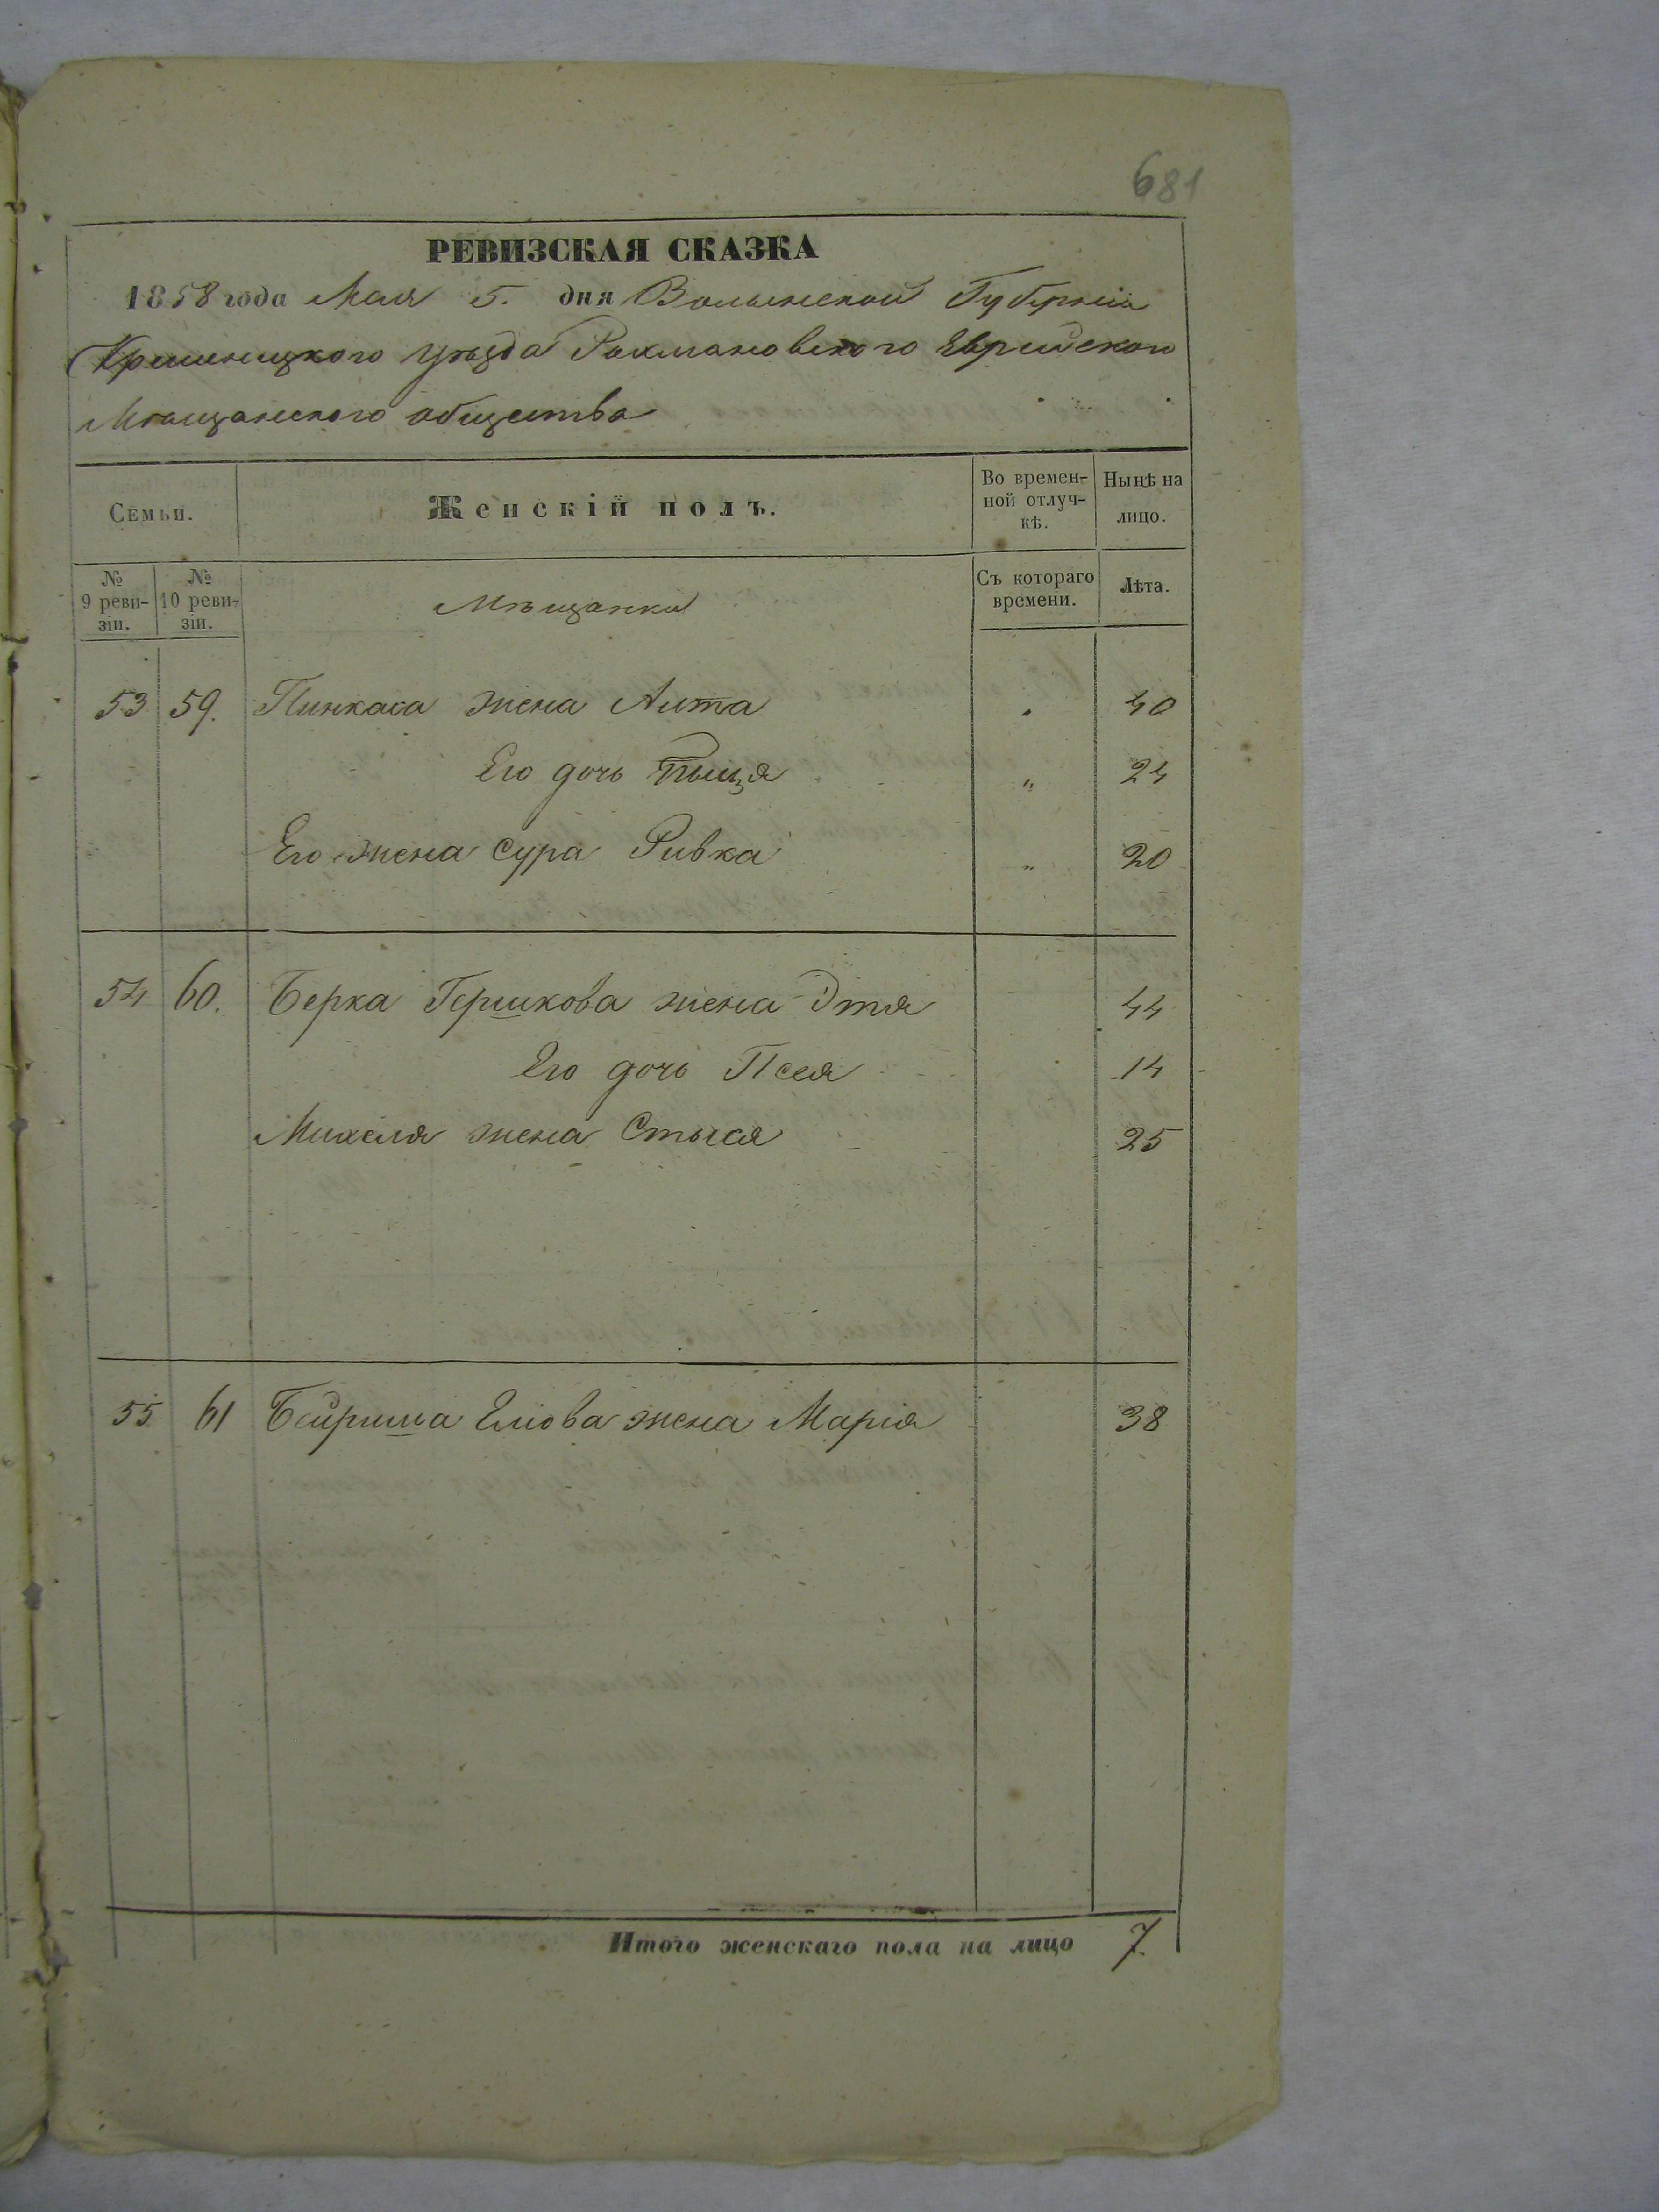 681
РЕВИЗСКАЯ СКАЗКА
1858 года Мая 5. дня Волынской Губерніи
Кременецкого уѣзда Рахмановского Еврейского
Мѣщанского общества
Семьи.
Женскій полъ.
Во времен-
ной отлуч-
кѣ.
Нынѣ на
лицо.
№
9 реви-
зіи.
№
10 реви-
зіи.
Мѣщанки
Съ котораго
времени.
Лѣта.
53 59. Пинкаса жена Алта " 40
Его дочь " 24
Его жена Сура Ривка " 20
54 60. Берка Гершкова жена Этя 44
Его дочь Песя 14
Михеля жена Стыся 25
55 61 Бейриша Еліова жена Марія 38
Итого женскаго пола на лицо 7.